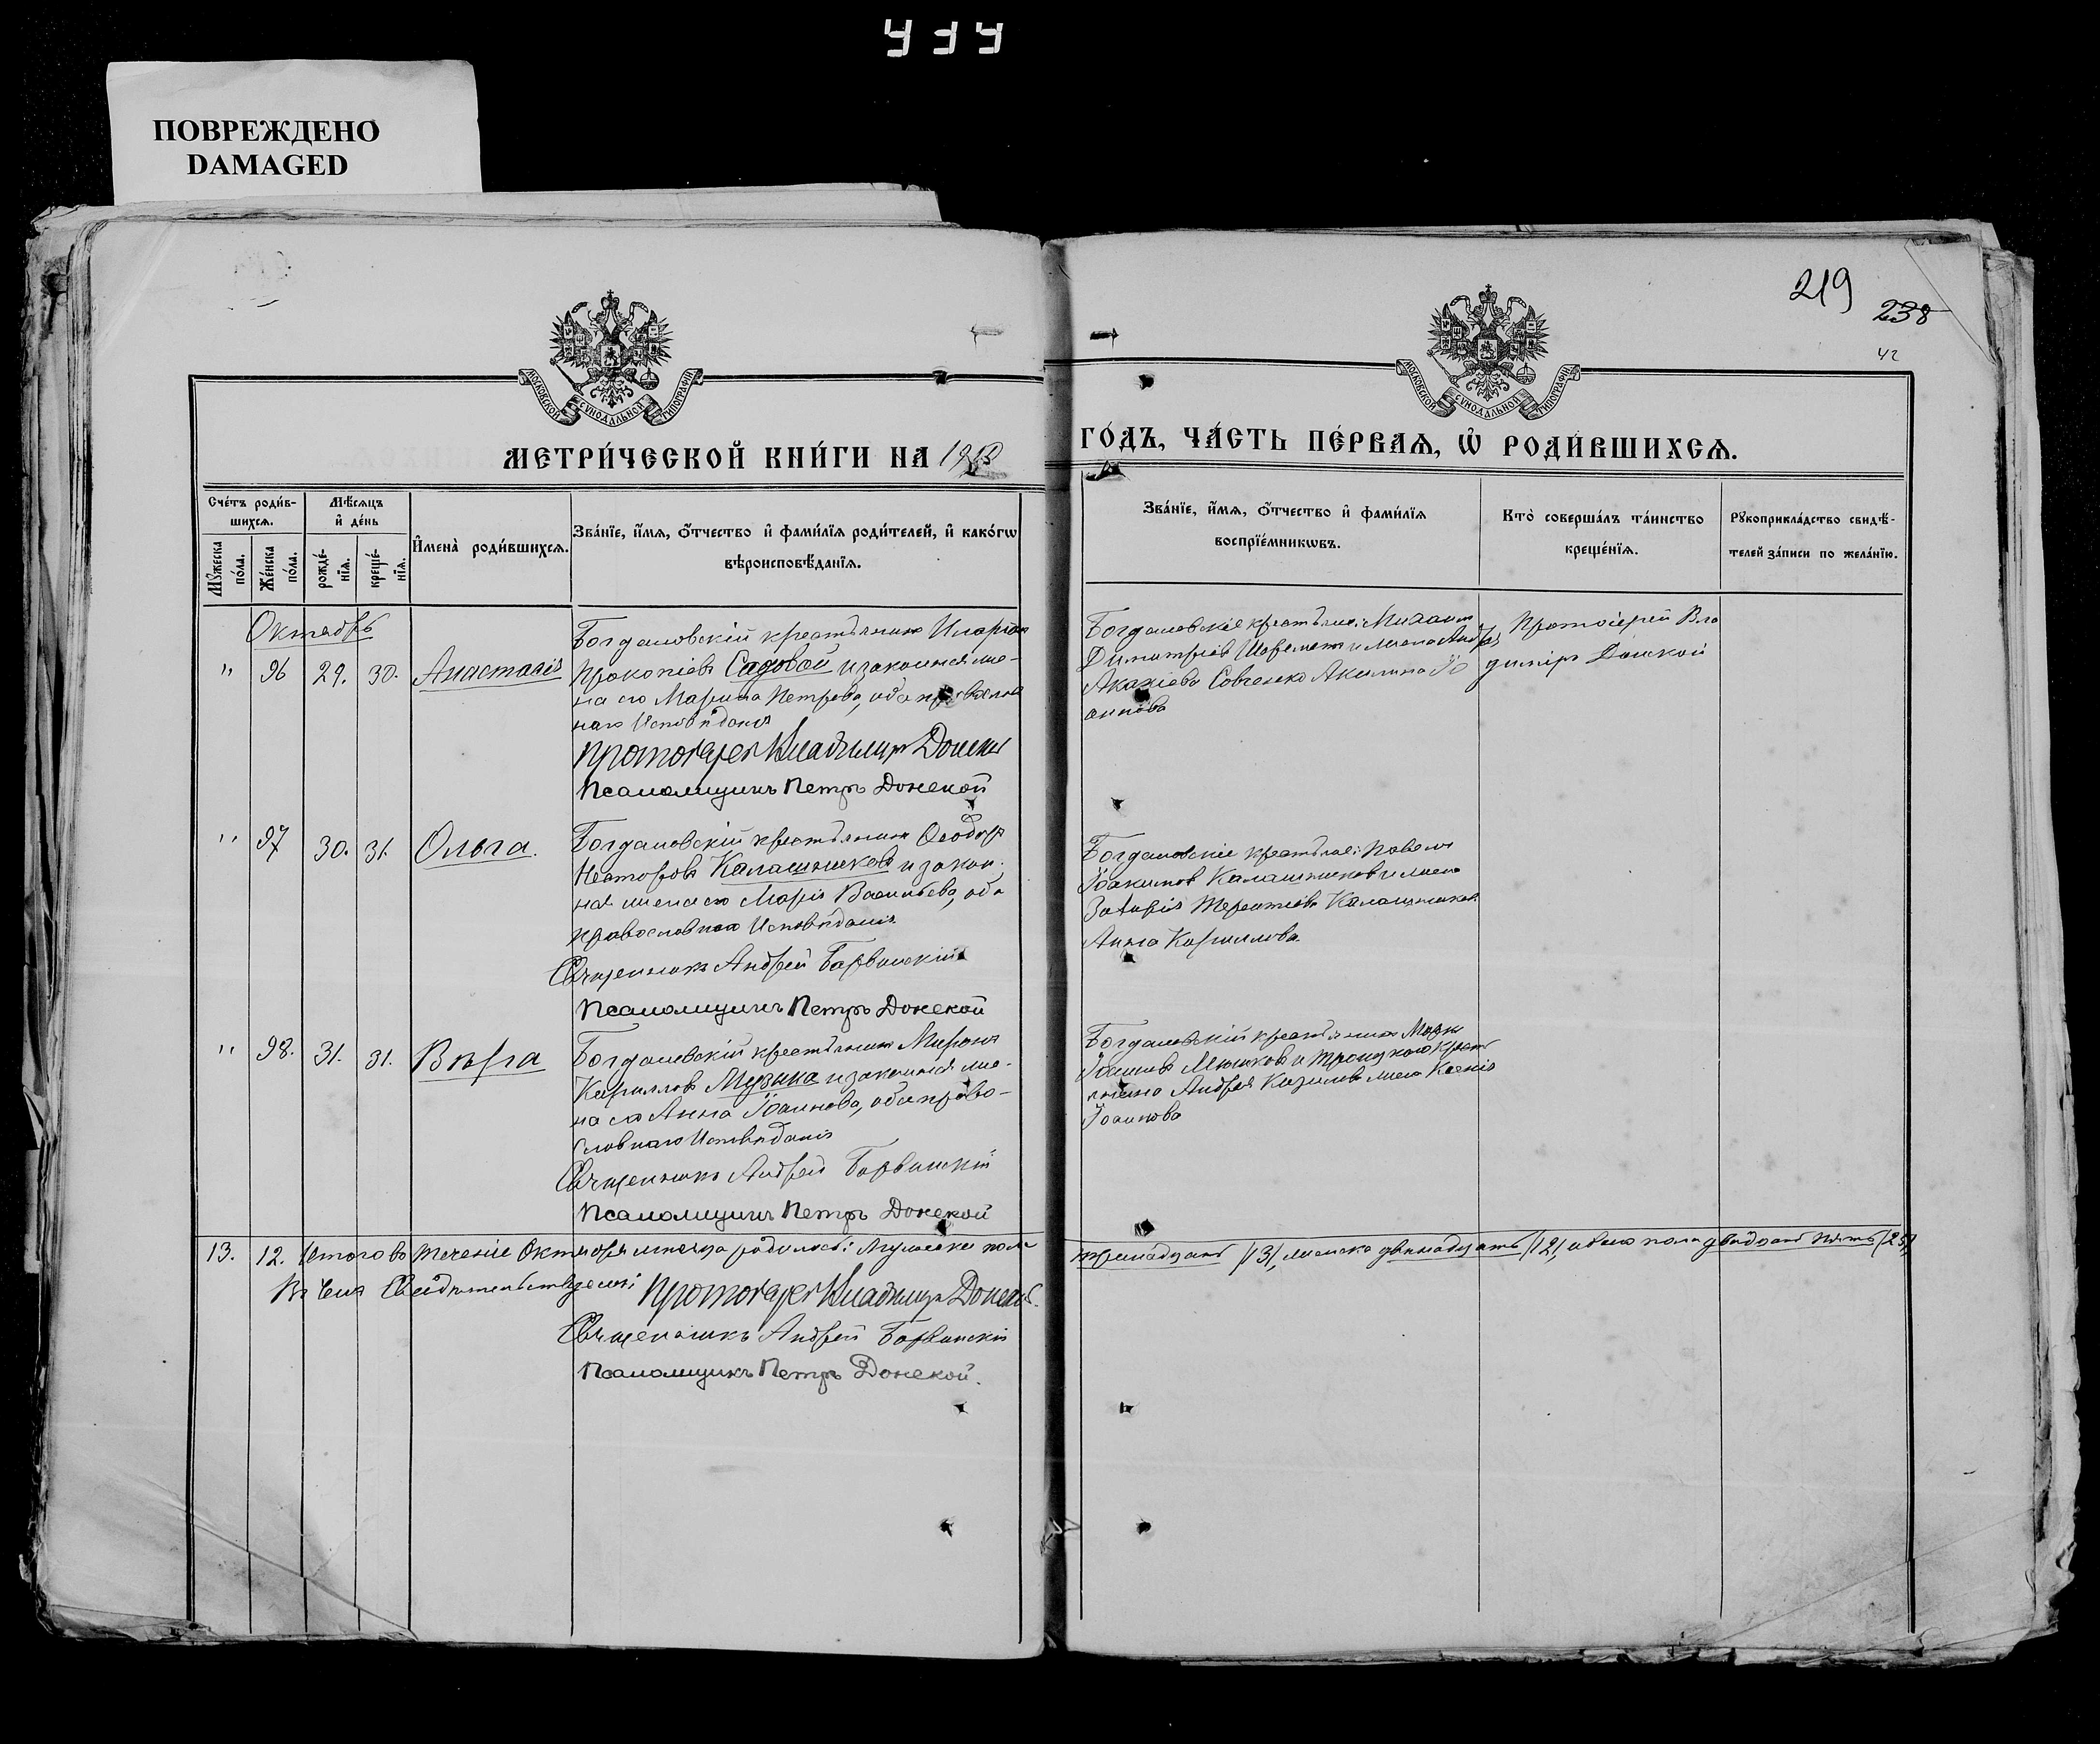 ПОВРЕЖДЕНО
DAMAGED
219
238
42
МОСКОВСКОЙ СѴНОДАЛЬНОЙ ТИПОГРАФІИ
МОСКОВСКОЙ СѴНОДАЛЬНОЙ ТИПОГРАФІИ
МЕТРИ́ЧЕСКОЙ КНИ́ГИ НА
ГО́ДЪ, ЧА́СТЬ ПЕ́РВАЯ, Ѡ РОДИ́ВШИХСЯ.
Сче́тъ роди́в-
шихся.
Мꙋжеска по́ла.
Же́нска по́ла.
Мѣ́сяцъ
и҆ де́нь
рожде́-
нїя.
креще́-
нїя.
И҆мена̀ роди́вшихся.
Зва́нїе, и҆́мя, ѻ҆́тчество и҆ фами́лїя роди́телей, и҆ како́гѡ
вѣроисповѣ́данїя.
Зва́нїе, и҆́мя, ѻ҆́тчество и҆ фами́лїя
воспрїе́мникѡвъ.
Кто̀ соверша́лъ та́инство
креще́нїя.
Рꙋкоприкла́дство свидѣ́-
телей за́писи по жела́нїю.
Октябрь
" 96 29. 30. Анастасія
Богдановскій крестьянинъ Иларіон
Прокопіевъ Садовой и законная же-
на его Марина Петрова, оба православ
наго Исповѣданія
Протоіерей Владиміръ Донской
Псаломщикъ Петръ Донской
Богдановскіе крестьяне: Михаилъ
Димитріевъ Шереметъ и жена Андрея
Акакіева Савченко Акилина Іо
аннова
Протоіерей Вла
диміръ Донской
" 97 30. 31. Ольга.
Богдановскій крестьянинъ Ѳеодоръ
Несторовъ Калашниковъ и закон-
ная жена его Марія Васильева, оба
православнаго Исповѣданія
Священникъ Андрей Барвинскій
Псаломщикъ Петръ Донской
Богдановскіе крестьяне: Павелъ
Іоакимовъ Калашниковъ и жена
Захарія Терентіева Калашникова
Анна Кириллова.
" 98. 31. 31. Вѣра
Богдановскій крестьянинъ Миронъ
Кириллов Музыка и законная же-
на его Анна Іоаннова, оба право-
славнаго Исповѣданія
Священникъ Андрей Барвинскій
Псаломщикъ Петръ Донской
Богдановскій крестьянинъ Маркъ
и Троицкаго крест
янина Андрея жена Ксенія
Іоаннова
13. 12. Итого въ теченіе Октября мѣсяца родилось: Мужеска пола
тринадцать /13/, женска двѣнадцать /12/, обоего пола двадцать пять /25/
Въ чемъ Свидѣтельствуемъ: Протоіерей Владиміръ Донской.
Священникъ Андрей Барвинскій
Псаломщикъ Петръ Донской.